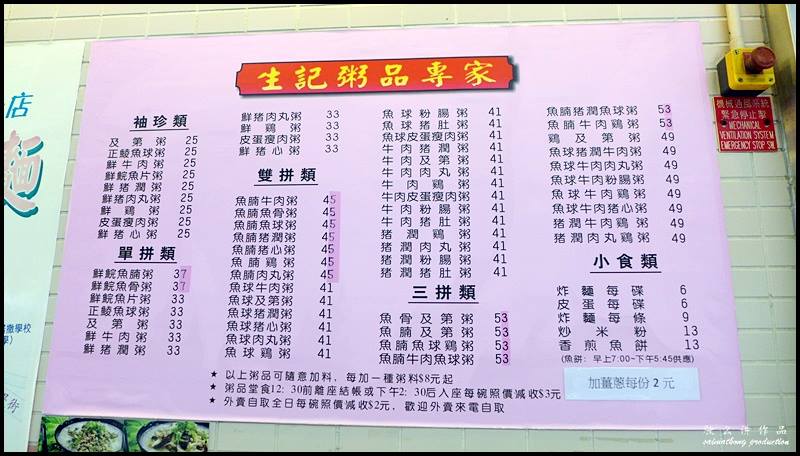 生記粥品專家
袖珍類
及第粥 25
正鯪魚球粥 25
鮮牛肉粥 25
鮮鯇魚片粥 25
鮮豬潤粥 25
鮮豬肉丸粥 25
鮮雞粥 25
皮蛋瘦肉粥 25
鮮豬心粥 25
單拼類
鮮鯇魚腩粥 37
鮮鯇魚骨粥 37
鮮鯇魚片粥 33
正鯪魚球粥 33
及第粥 33
鮮牛肉粥 33
鮮豬潤粥 33
鮮豬肉丸粥 33
鮮雞粥 33
皮蛋瘦肉粥 33
鮮豬心粥 33
雙拼類
魚腩牛肉粥 45
魚腩魚骨粥 45
魚腩魚球粥 45
魚腩豬潤粥 45
魚腩豬心粥 45
魚腩雞粥 45
魚腩肉丸粥 45
魚球牛肉粥 41
魚球及第粥 41
魚球豬潤粥 41
魚球豬心粥 41
魚球肉丸粥 41
魚球雞粥 41
魚球粉腸粥 41
魚球豬肚粥 41
魚球皮蛋瘦肉粥 41
牛肉豬潤粥 41
牛肉及第粥 41
牛肉肉丸粥 41
牛肉雞粥 41
牛肉皮蛋瘦肉粥 41
牛肉粉腸粥 41
牛肉豬肚粥 41
豬潤雞粥 41
豬潤肉丸粥 41
豬潤粉腸粥 41
豬潤豬肚粥 41
三拼類
魚骨及第粥 53
魚腩及第粥 53
魚腩魚球雞粥 53
魚腩牛肉魚球粥 53
魚腩豬潤魚球粥 53
魚腩牛肉雞粥 53
雞及第粥 49
魚球豬潤牛肉粥 49
魚球牛肉肉丸粥 49
魚球牛肉粉腸粥 49
魚球牛肉雞粥 49
魚球牛肉豬心粥 49
豬潤牛肉雞粥 49
豬潤肉丸雞粥 49
小食類
炸麵每碟 6
皮蛋每碟 6
炸麵每條 9
炒米粉 13
香煎魚餅 13
(魚餅: 早上7:00~下午5:45供應)
加薑蔥每份 2 元
★ 以上粥品可隨意加料，每加一種粥料$8元起
★ 粥品堂食12:30前離座結帳或下午2:30后入座每碗照價減收$3元
★ 外賣自取全日每碗照價減收$2元，歡迎外賣來電自取
機械通風系統
緊急停止掣
MECHANICAL
VENTILATION SYSTEM
EMERGENCY STOP SW.
店
麵